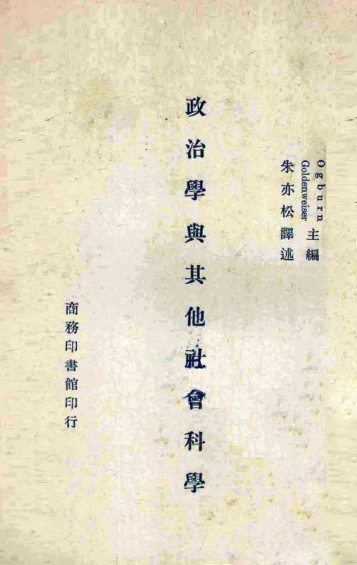 Ogburn
Goldenweiser 主編
朱亦松譯述
政治學與其他社會科學
商務印書館印行